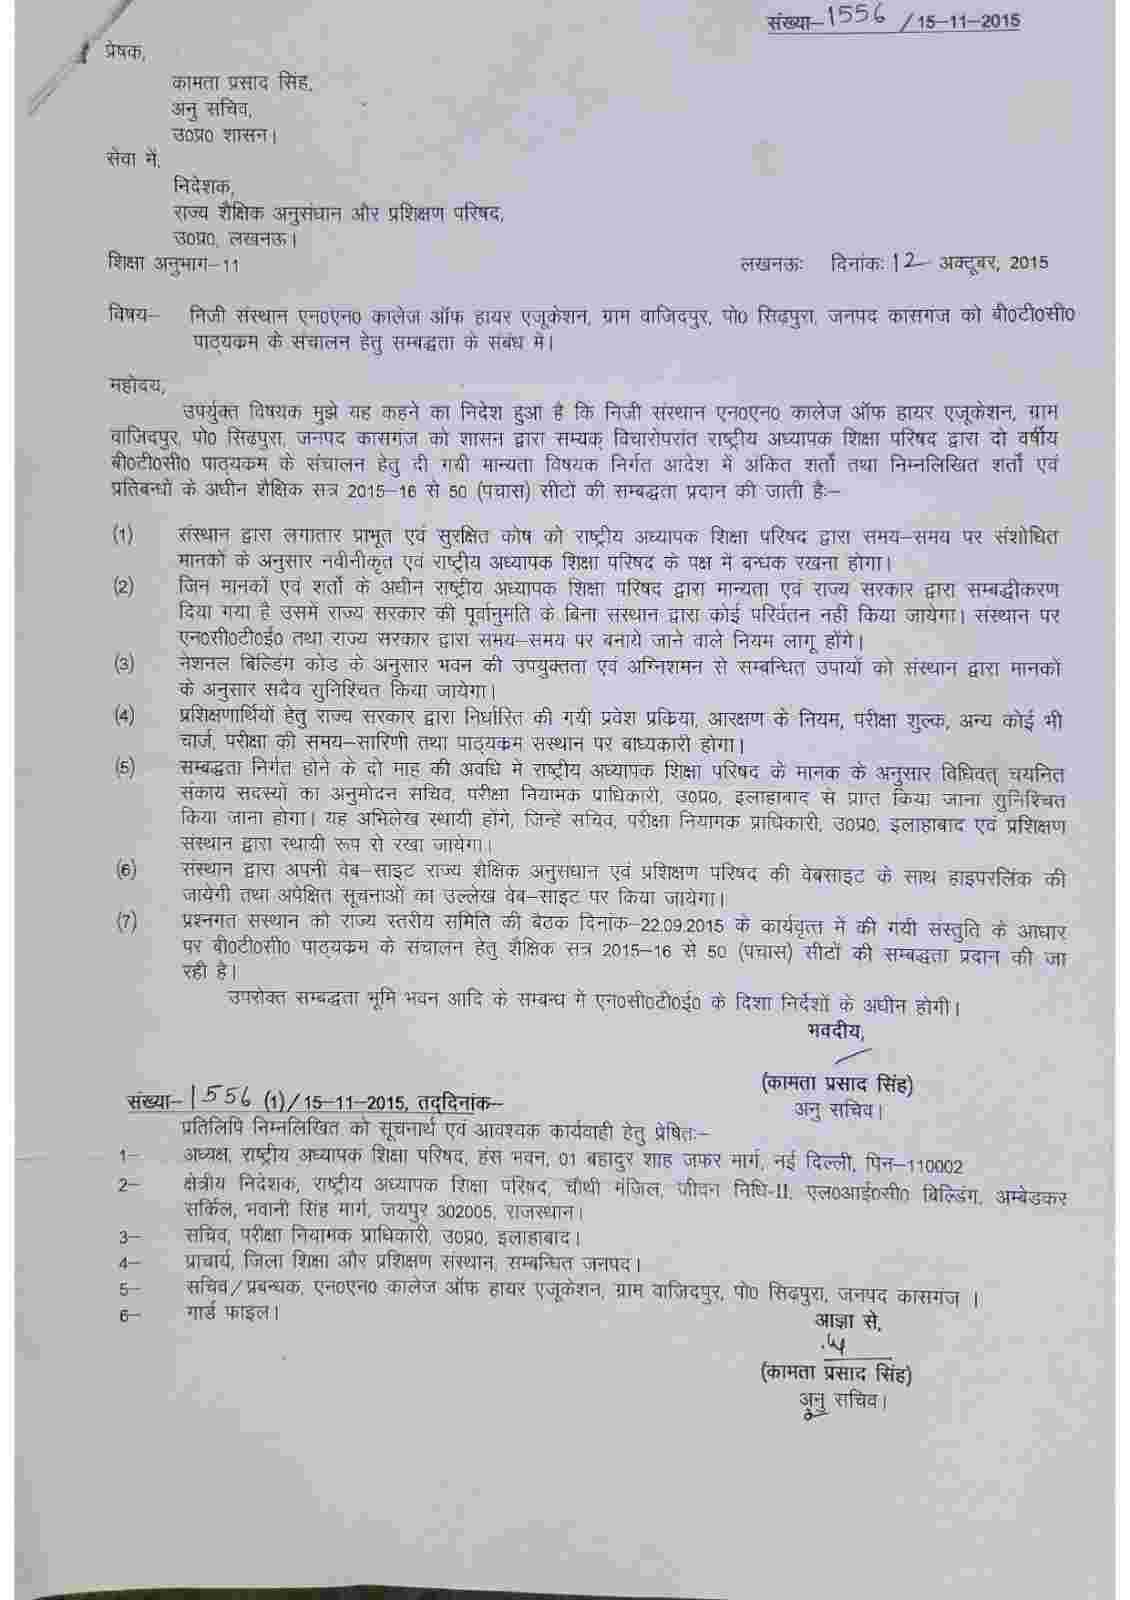 संख्या-1556 /15-11-2015
प्रेषक,
कामता प्रसाद सिंह,
अनु सचिव,
उ0प्र0 शासन।
सेवा में,
निदेशक,
राज्य शैक्षिक अनुसंधान और प्रशिक्षण परिषद,
उ0प्र0, लखनऊ।
शिक्षा अनुभाग-11 लखनऊः दिनांकः 12 अक्टूबर, 2015
विषय- निजी संस्थान एन0एन0 कालेज ऑफ हायर एजूकेशन, ग्राम वाजिदपुर, पो0 सिढ़पुरा, जनपद कासगंज को बी0टी0सी0
पाठ्यक्रम के संचालन हेतु सम्बद्धता के संबंध में।
महोदय,
उपर्युक्त विषयक मुझे यह कहने का निदेश हुआ है कि निजी संस्थान एन0एन0 कालेज ऑफ हायर एजूकेशन, ग्राम
वाजिदपुर, पो0 सिढ़पुरा, जनपद कासगंज को शासन द्वारा सम्यक् विचारोपरांत राष्ट्रीय अध्यापक शिक्षा परिषद द्वारा दो वर्षीय
बी0टी0सी0 पाठ्यक्रम के संचालन हेतु दी गयी मान्यता विषयक निर्गत आदेश में अंकित शर्तों तथा निम्नलिखित शर्तों एवं
प्रतिबन्धों के अधीन शैक्षिक सत्र 2015-16 से 50 (पचास) सीटों की सम्बद्धता प्रदान की जाती हैः-
(1) संस्थान द्वारा लगातार प्राभूत एवं सुरक्षित कोष को राष्ट्रीय अध्यापक शिक्षा परिषद द्वारा समय-समय पर संशोधित
मानकों के अनुसार नवीनीकृत एवं राष्ट्रीय अध्यापक शिक्षा परिषद के पक्ष में बन्धक रखना होगा।
(2) जिन मानकों एवं शर्तो के अधीन राष्ट्रीय अध्यापक शिक्षा परिषद द्वारा मान्यता एवं राज्य सरकार द्वारा सम्बद्धीकरण
दिया गया है उसमें राज्य सरकार की पूर्वानुमति के बिना संस्थान द्वारा कोई परिर्वतन नहीं किया जायेगा। संस्थान पर
एन0सी0टी0ई0 तथा राज्य सरकार द्वारा समय-समय पर बनाये जाने वाले नियम लागू होंगे।
(3) नेशनल बिल्डिंग कोड के अनुसार भवन की उपयुक्तता एवं अग्निशमन से सम्बन्धित उपायों को संस्थान द्वारा मानकों
के अनुसार सदैव सुनिश्चित किया जायेगा।
(4) प्रशिक्षणार्थियों हेतु राज्य सरकार द्वारा निर्धारित की गयी प्रवेश प्रक्रिया, आरक्षण के नियम, परीक्षा शुल्क, अन्य कोई भी
चार्ज, परीक्षा की समय-सारिणी तथा पाठ्यक्रम संस्थान पर बाध्यकारी होगा।
(5) सम्बद्धता निर्गत होने के दो माह की अवधि में राष्ट्रीय अध्यापक शिक्षा परिषद के मानक के अनुसार विधिवत् चयनित
संकाय सदस्यों का अनुमोदन सचिव, परीक्षा नियामक प्राधिकारी, उ0प्र0, इलाहाबाद से प्राप्त किया जाना सुनिश्चित
किया जाना होगा। यह अभिलेख स्थायी होंगे, जिन्हें सचिव, परीक्षा नियामक प्राधिकारी, उ0प्र0, इलाहाबाद एवं प्रशिक्षण
संस्थान द्वारा स्थायी रूप से रखा जायेगा।
(6) संस्थान द्वारा अपनी वेब-साइट राज्य शैक्षिक अनुसंधान एवं प्रशिक्षण परिषद की वेबसाइट के साथ हाइपरलिंक की
जायेगी तथा अपेक्षित सूचनाओं का उल्लेख वेब-साइट पर किया जायेगा।
(7) प्रश्नगत संस्थान को राज्य स्तरीय समिति की बैठक दिनांक-22.09.2015 के कार्यवृत्त में की गयी संस्तुति के आधार
पर बी0टी0सी0 पाठ्यक्रम के संचालन हेतु शैक्षिक सत्र 2015-16 से 50 (पचास) सीटों की सम्बद्धता प्रदान की जा
रही है।
उपरोक्त सम्बद्धता भूमि भवन आदि के सम्बन्ध में एन0सी0टी0ई0 के दिशा निर्देशों के अधीन होगी।
भवदीय,
(कामता प्रसाद सिंह)
अनु सचिव।
संख्या-1556 (1)/15-11-2015, तद्दिनांक-
प्रतिलिपि निम्नलिखित को सूचनार्थ एवं आवश्यक कार्यवाही हेतु प्रेषितः-
1- अध्यक्ष, राष्ट्रीय अध्यापक शिक्षा परिषद, हंस भवन, 01 बहादुर शाह जफर मार्ग, नई दिल्ली, पिन-110002
2- क्षेत्रीय निदेशक, राष्ट्रीय अध्यापक शिक्षा परिषद, चौथी मंजिल, जीवन निधि-II, एल0आई0सी0 बिल्डिंग, अम्बेडकर
सर्किल, भवानी सिंह मार्ग, जयपुर 302005, राजस्थान।
3- सचिव, परीक्षा नियामक प्राधिकारी, उ0प्र0, इलाहाबाद।
4- प्राचार्य, जिला शिक्षा और प्रशिक्षण संस्थान, सम्बन्धित जनपद।
5- सचिव/प्रबन्धक, एन0एन0 कालेज ऑफ हायर एजूकेशन, ग्राम वाजिदपुर, पो0 सिढ़पुरा, जनपद कासगंज ।
6- गार्ड फाइल।
आज्ञा से,
(कामता प्रसाद सिंह)
अनु सचिव।